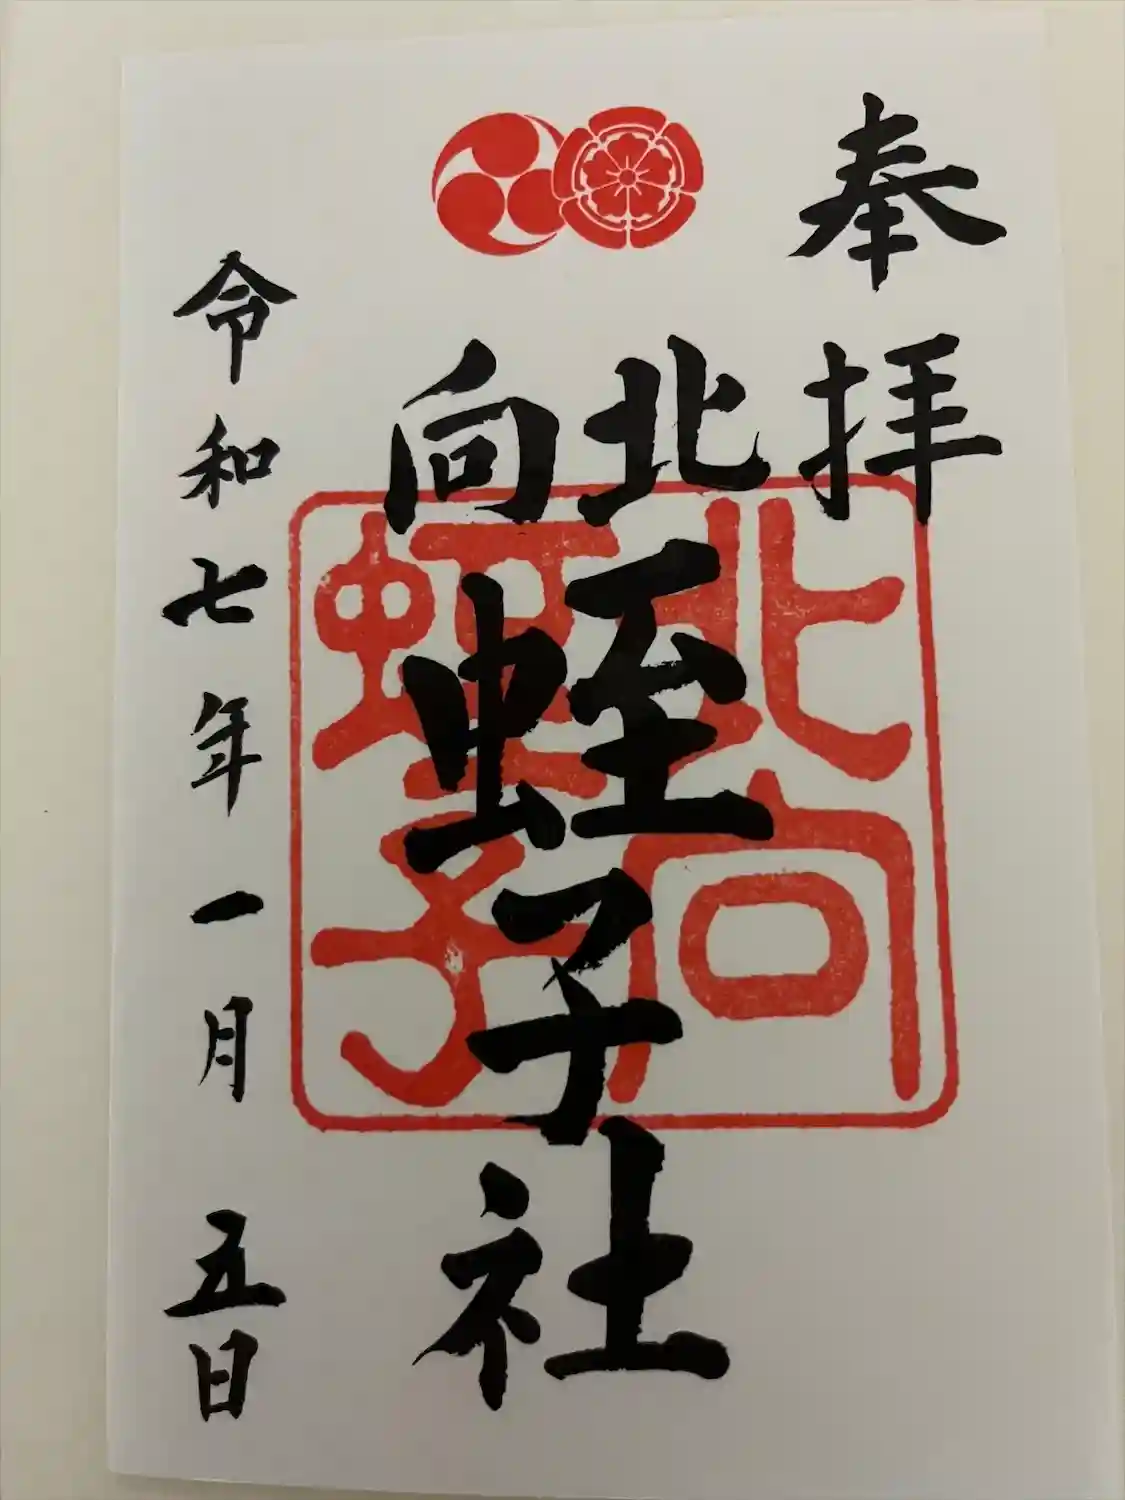 奉拝
北向
蛭子社
北向
蛭子
令和七年一月五日